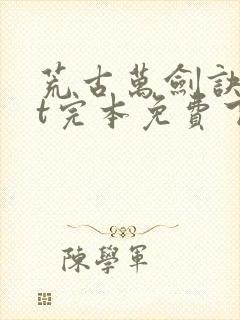 荒古萬劍訣
t完本免費
陳學軍